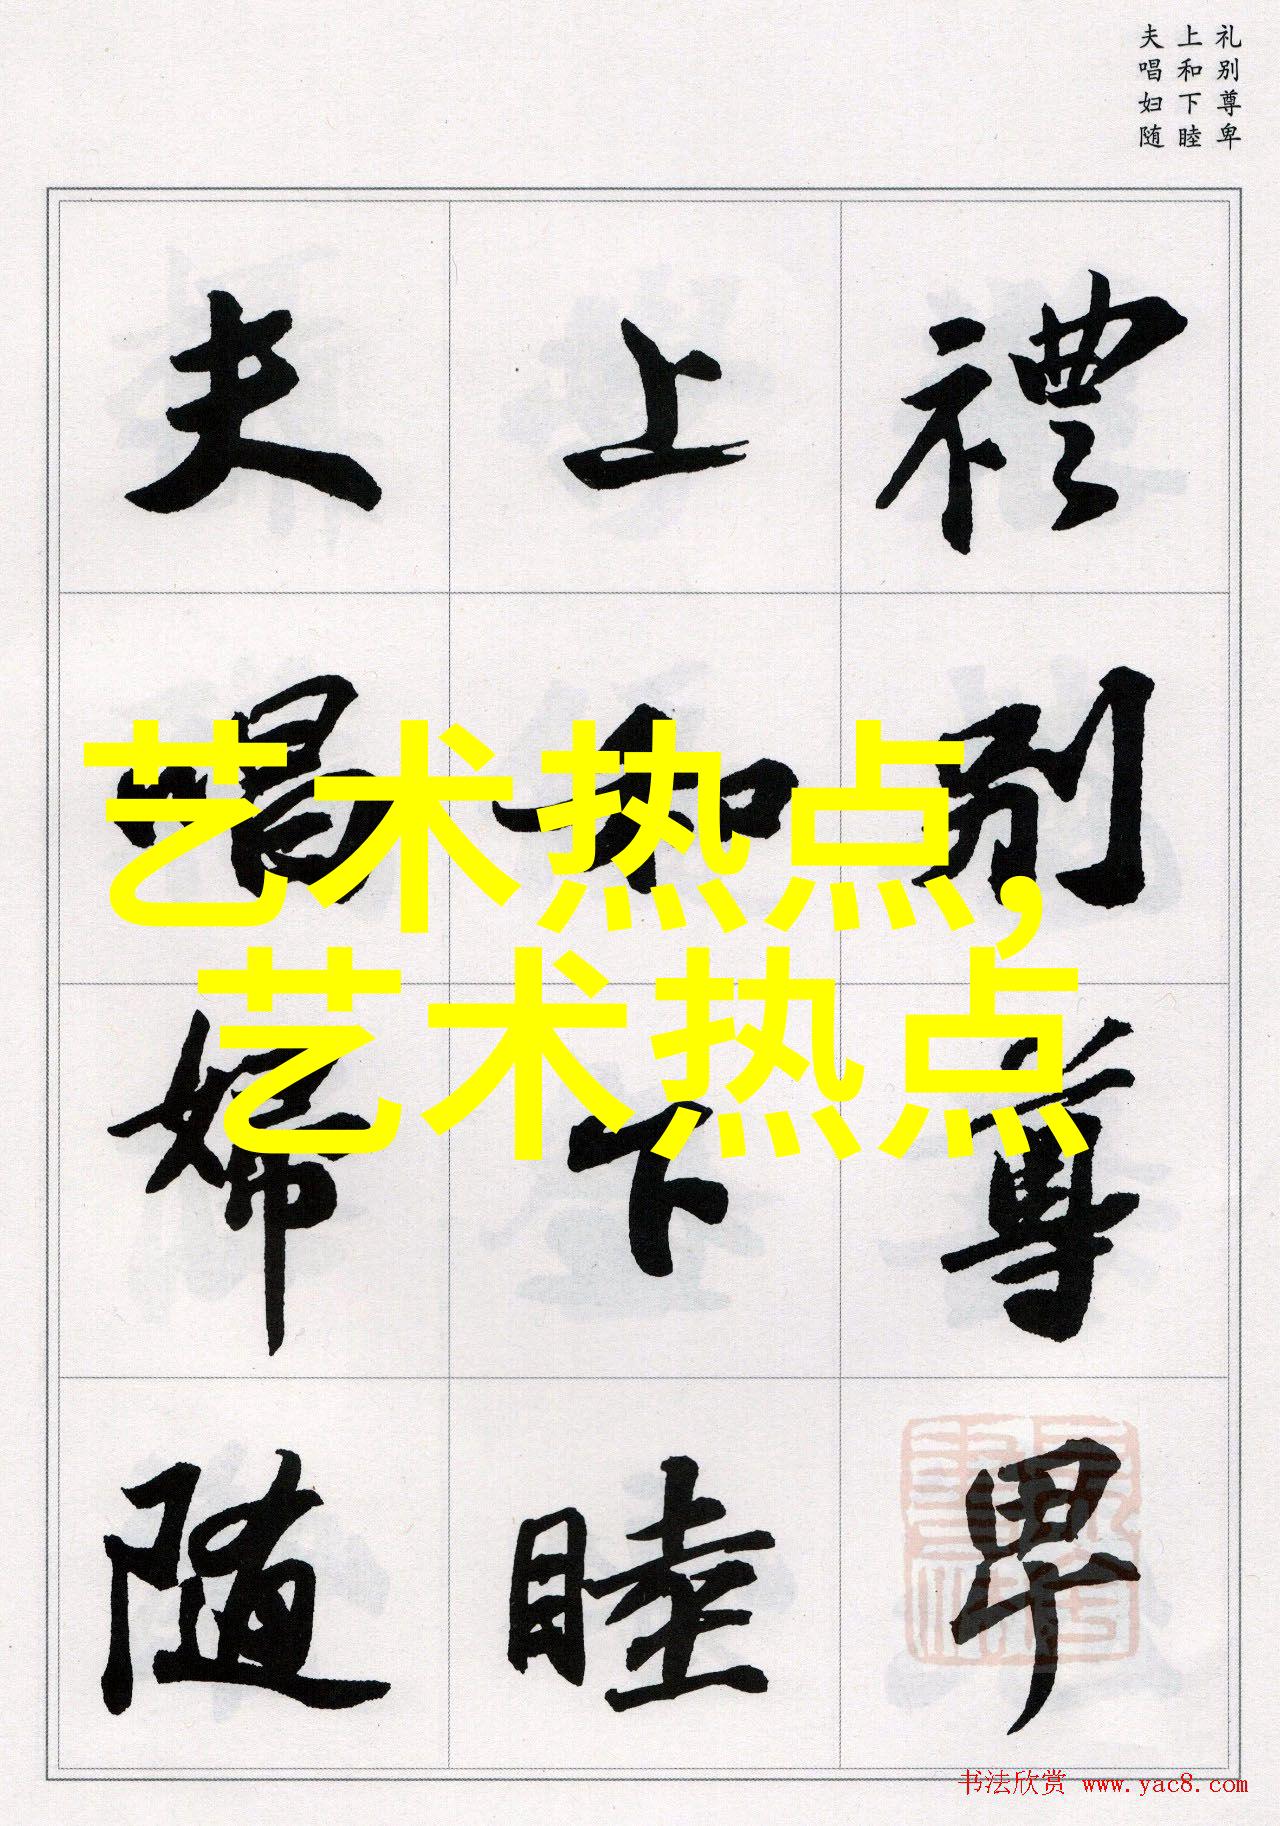 礼别尊卑
上和下睦
夫唱妇随
禮别尊卑
上和下睦
夫唱婦随
艺术热点,
艺术热点
书法欣赏 www.yac8.com